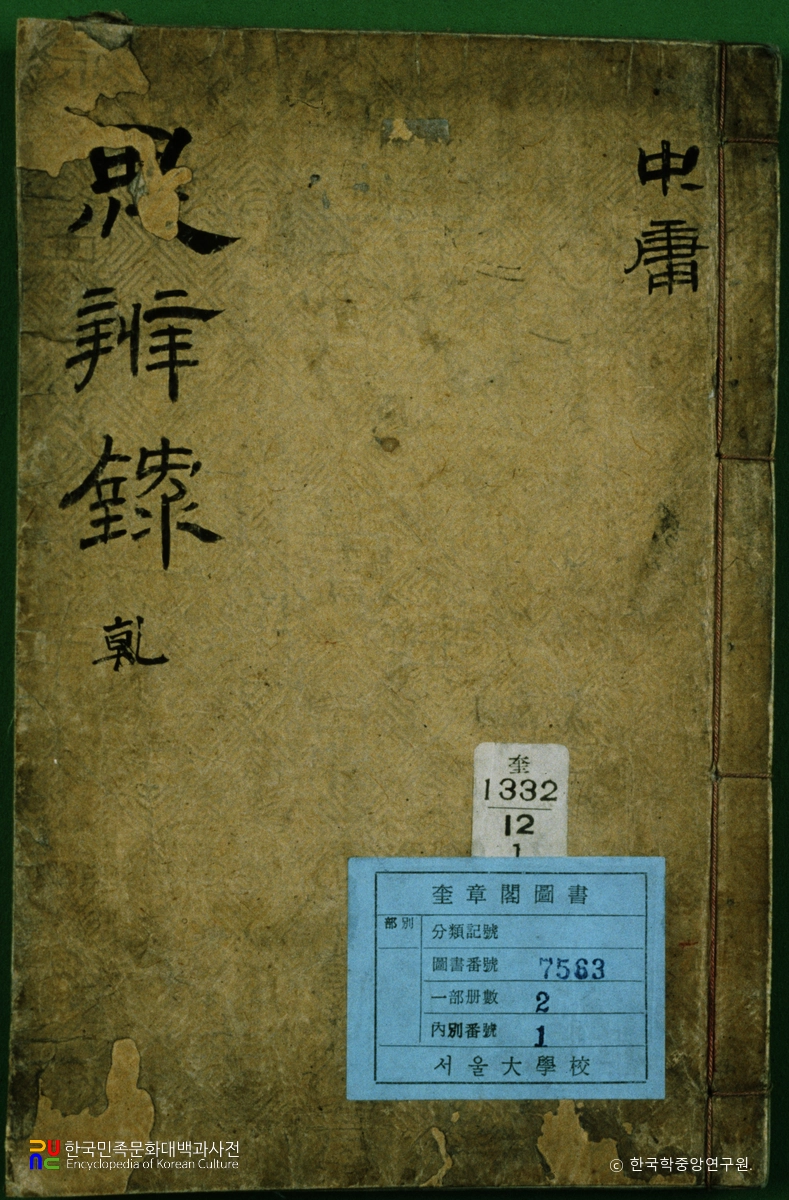 中庸
辨錄 乾
奎
1332
12
1
奎章閣圖書
部別
分類記號
圖書番號 7563
一部册數 2
內別番號 1
서울大學校
한국민족문화대백과사전
Encyclopedia of Korean Culture
© 한국학중앙연구원